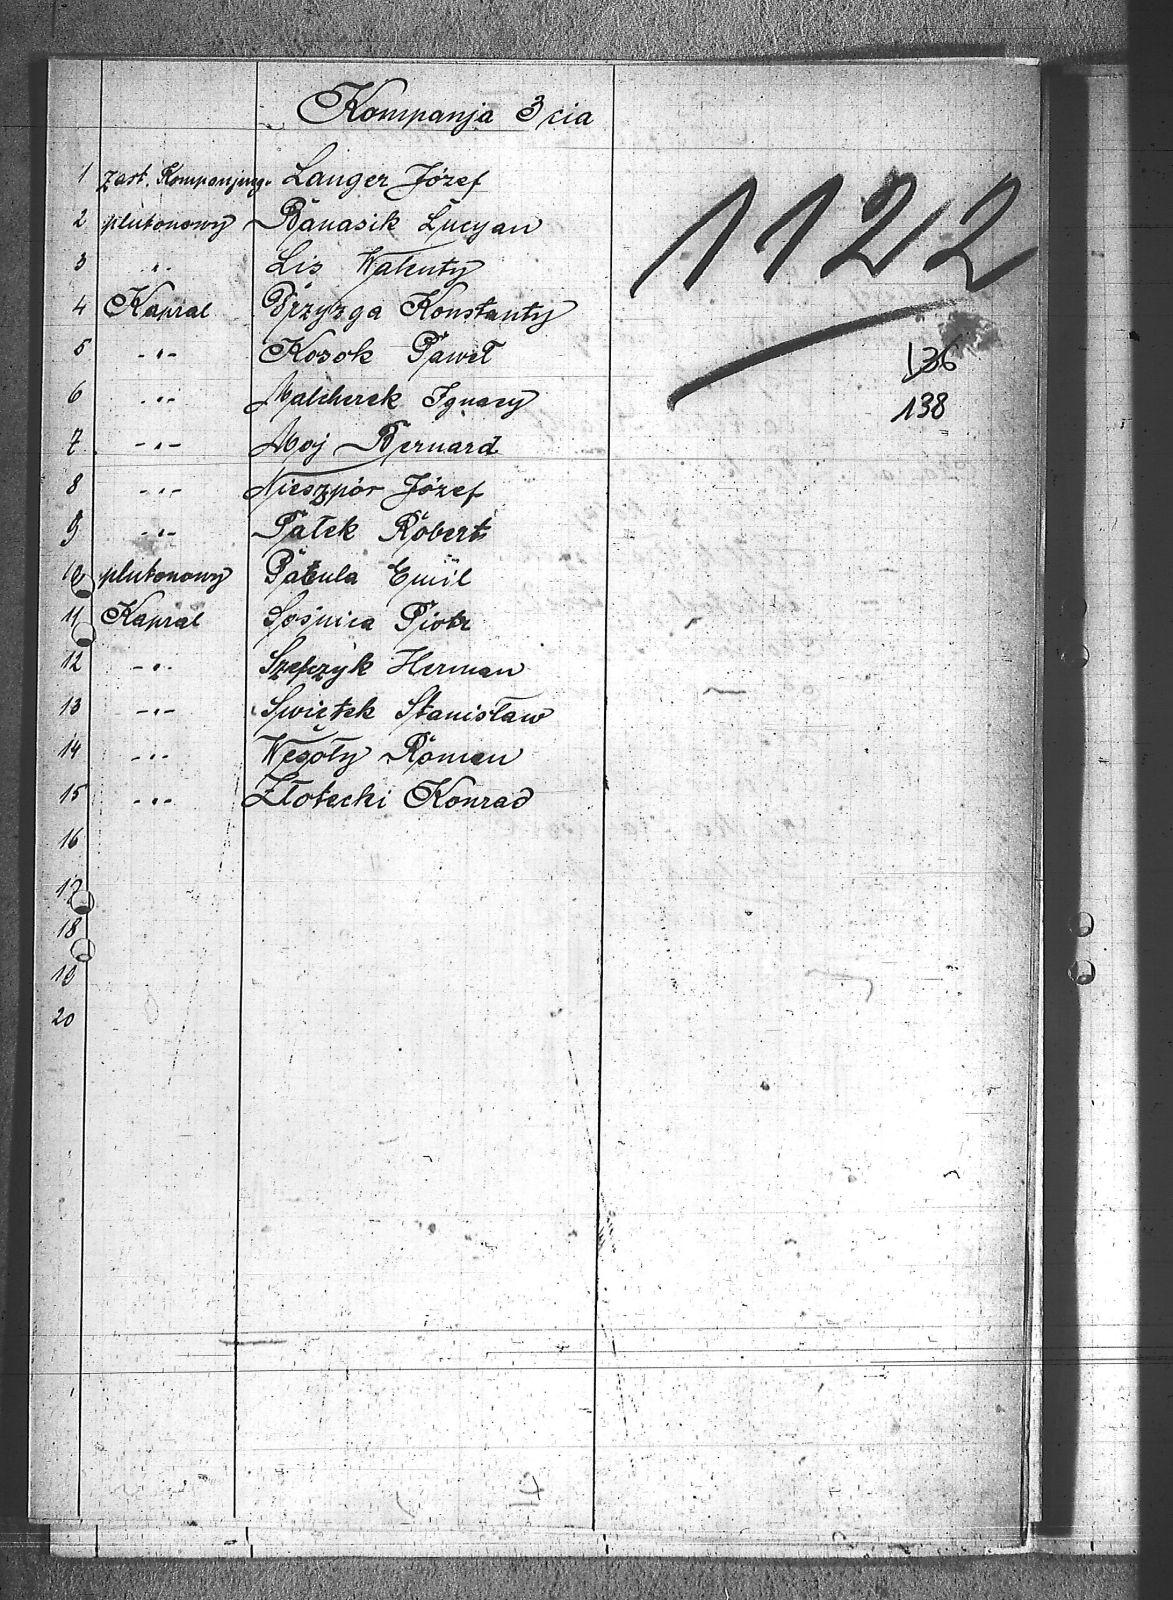 Kompanja 3 cia
1 zast. Kompanjing. Langer Józef
2 plutonowy Banasik Lucyan
3 -"- Lis Walenty
4 Kapral Przyzga Konstanty
5 -"- Kosok Paweł
6 -"- Malcherek Ignacy
7 -"- Moj Bernard
8 -"- Nieszpór Józef
9 -"- Pałek Robert
10 plutonowy Patula Emil
11 Kapral Sośnica Piotr
12 -"- Szefczyk Herman
13 -"- Swiętek Stanisław
14 -"- Wesoły Roman
15 -"- Złotecki Konrad
16
17
18
19
20
1122
136
138